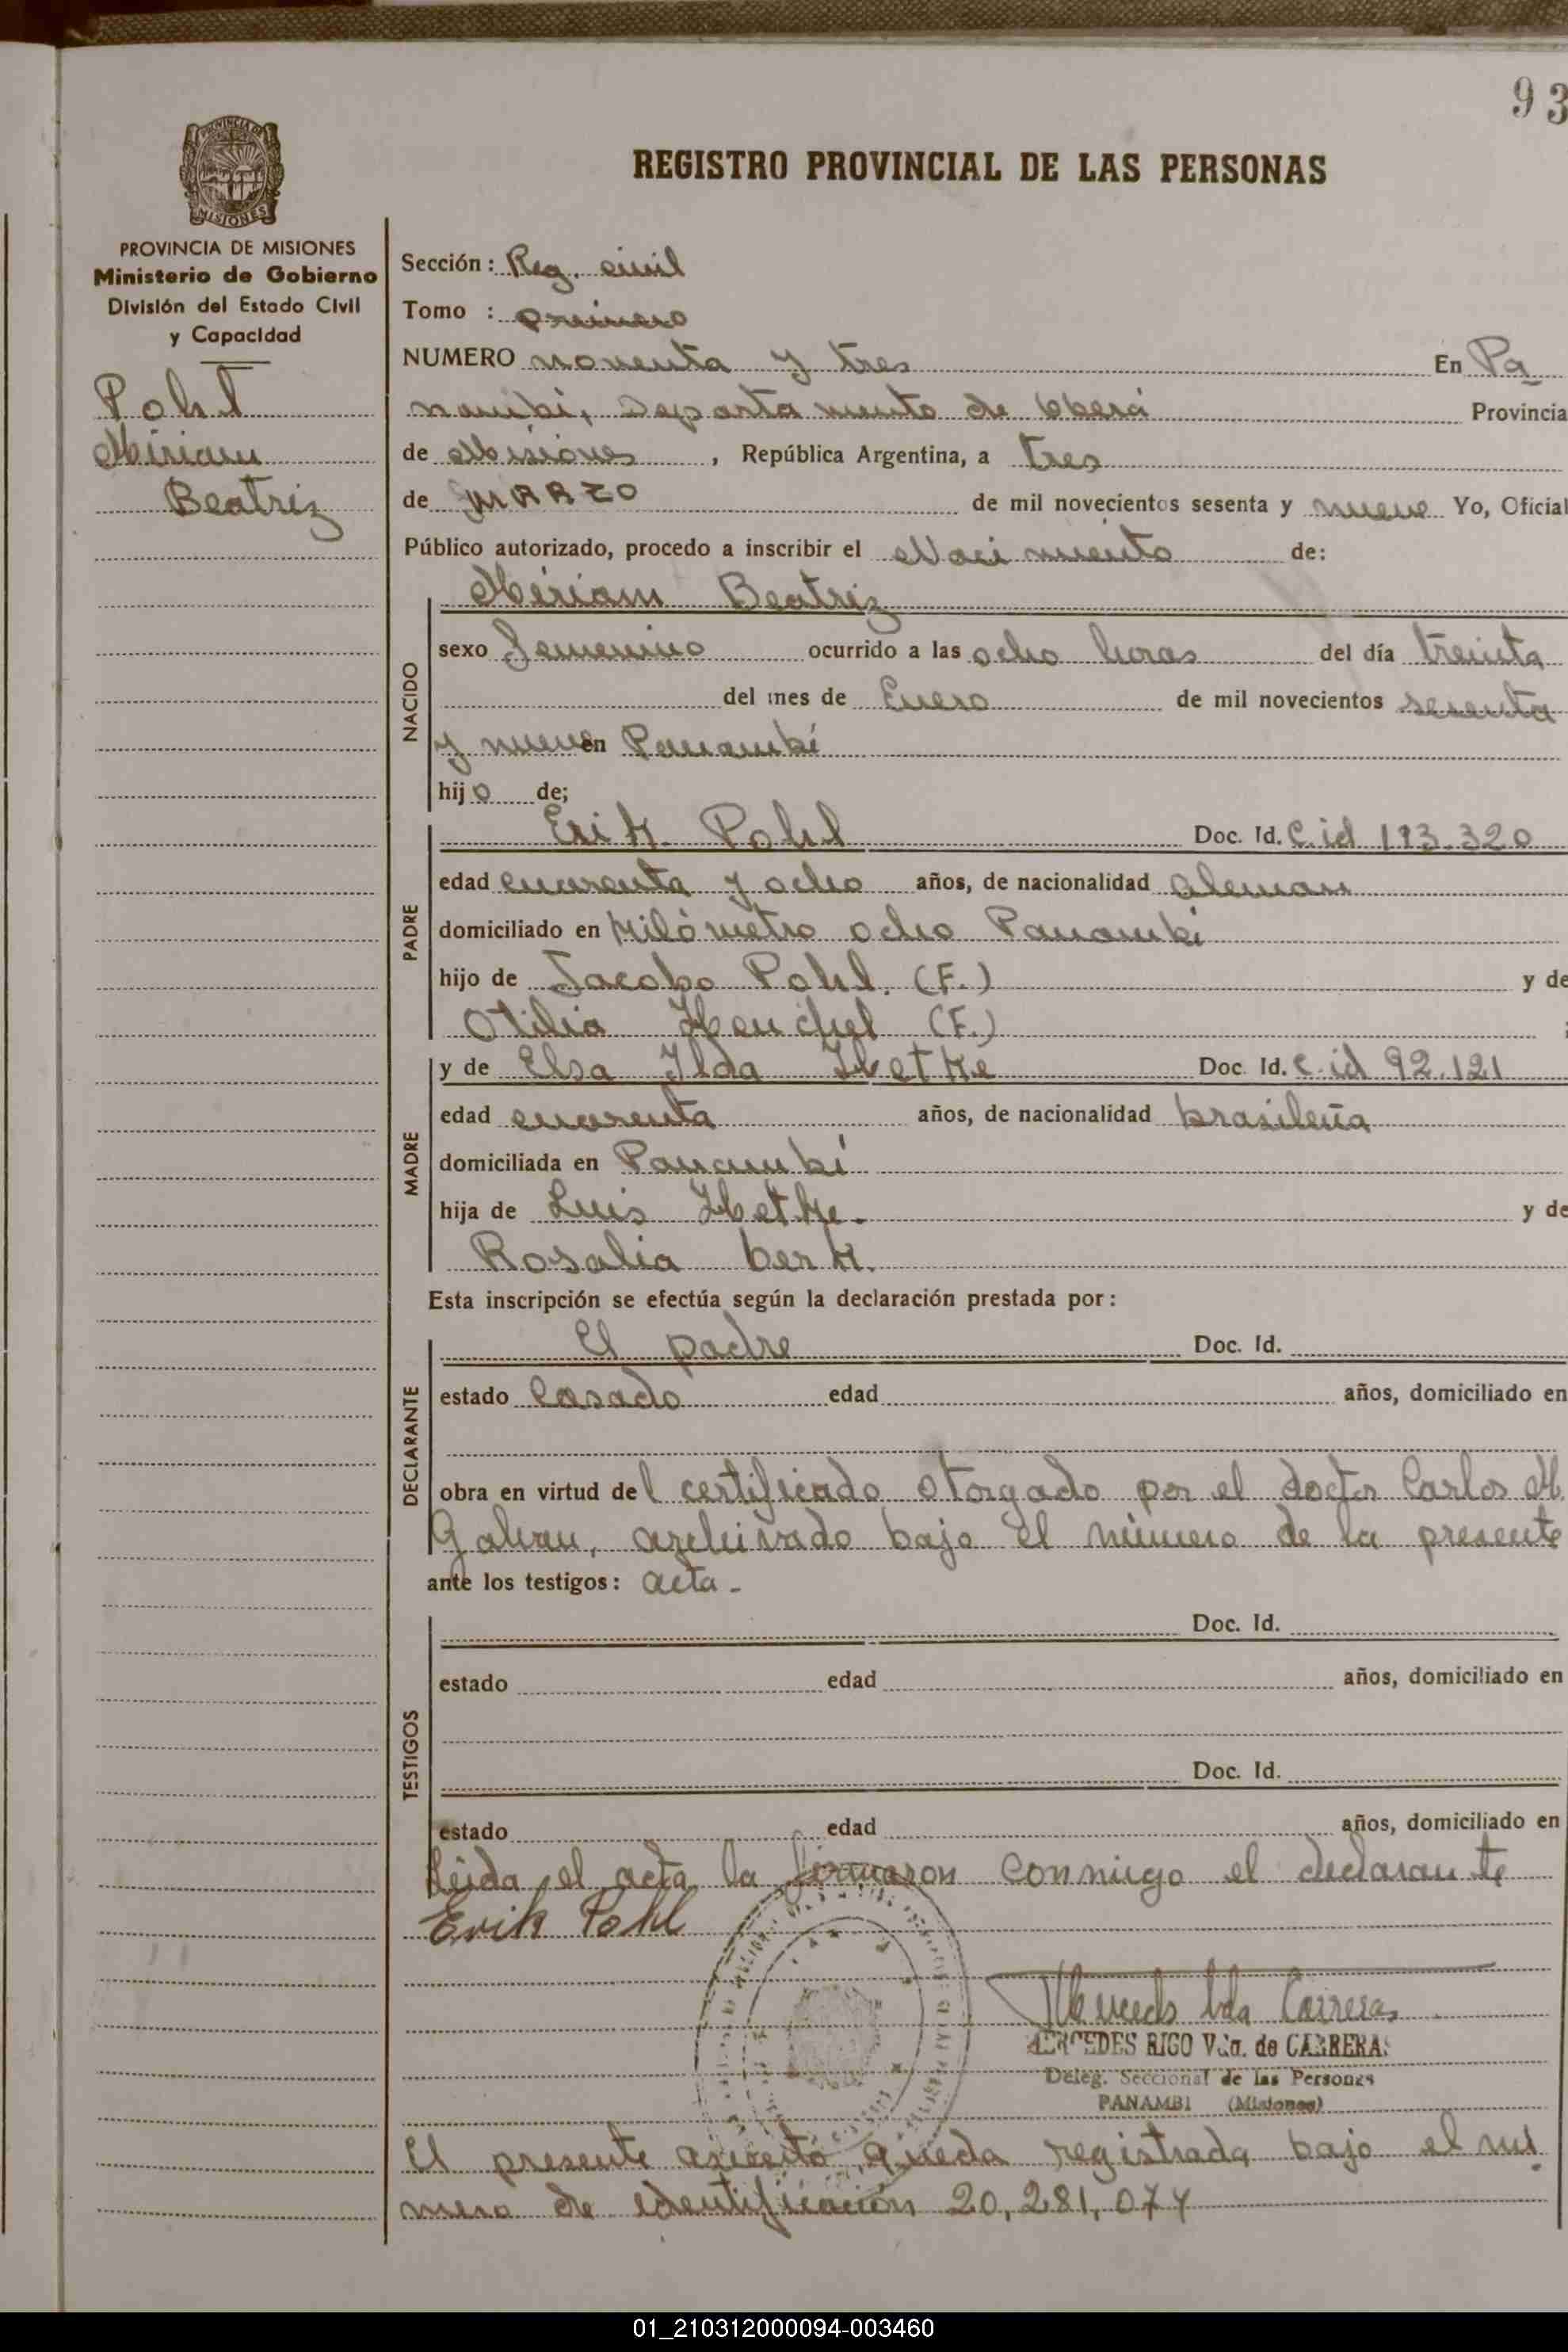 93
REGISTRO PROVINCIAL DE LAS PERSONAS
PROVINCIA DE MISIONES
Ministerio de Gobierno
División del Estado Civil
y Capacidad
Pohl
Miriam
Beatriz
Sección: Reg. civil
Tomo : primero
NUMERO noventa y tres En Pa
nambí, Departamento de Oberá Provincia
de Misiones, República Argentina, a tres
de MARZO de mil novecientos sesenta y nueve Yo, Oficial
Público autorizado, procedo a inscribir el Nacimiento de:
Miriam Beatriz
NACIDO
sexo Femenino ocurrido a las ocho horas del día treinta
del mes de Enero de mil novecientos sesenta
y nueve en Panambí
hijo de;
PADRE
Erik Pohl Doc. Id. C.id 193.320
edad cuarenta y ocho años, de nacionalidad aleman
domiciliado en Kilómetro ocho Panambí
hijo de Jacobo Pohl. (F.) y de
Otilia Henchel (F.)
MADRE
y de Elsa Ilda Doc. Id. C.id 92.121
edad cuarenta años, de nacionalidad brasileña
domiciliada en Panambí
hija de Luis y de
Rosalia Berk.
Esta inscripción se efectúa según la declaración prestada por:
DECLARANTE
El padre Doc. Id.
estado Casado edad años, domiciliado en
obra en virtud del certificado otorgado por el doctor Carlos M.
Galvan, archivado bajo el número de la presente
ante los testigos: acta.
TESTIGOS
Doc. Id.
estado edad años, domiciliado en
Doc. Id.
estado edad años, domiciliado en
Leída el acta la firmaron conmigo el declarante
Erik Pohl
Mercedes Vda Carreras
MERCEDES RIGO Vda. de CARRERAS
Deleg. Seccional de las Personas
PANAMBI (Misiones)
El presente queda registrada bajo el nú
mero de identificación 20,281,074
01_210312000094-003460